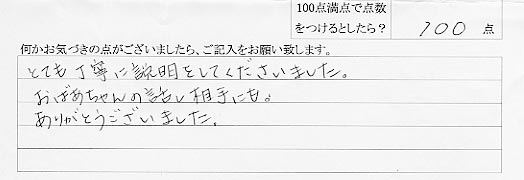 100点満点で点数
をつけるとしたら？ 100 点
何かお気づきの点がございましたら、ご記入をお願い致します。
とても丁寧に説明をしてくださいました。
おばあちゃんの話し相手にも。
ありがとうございました。